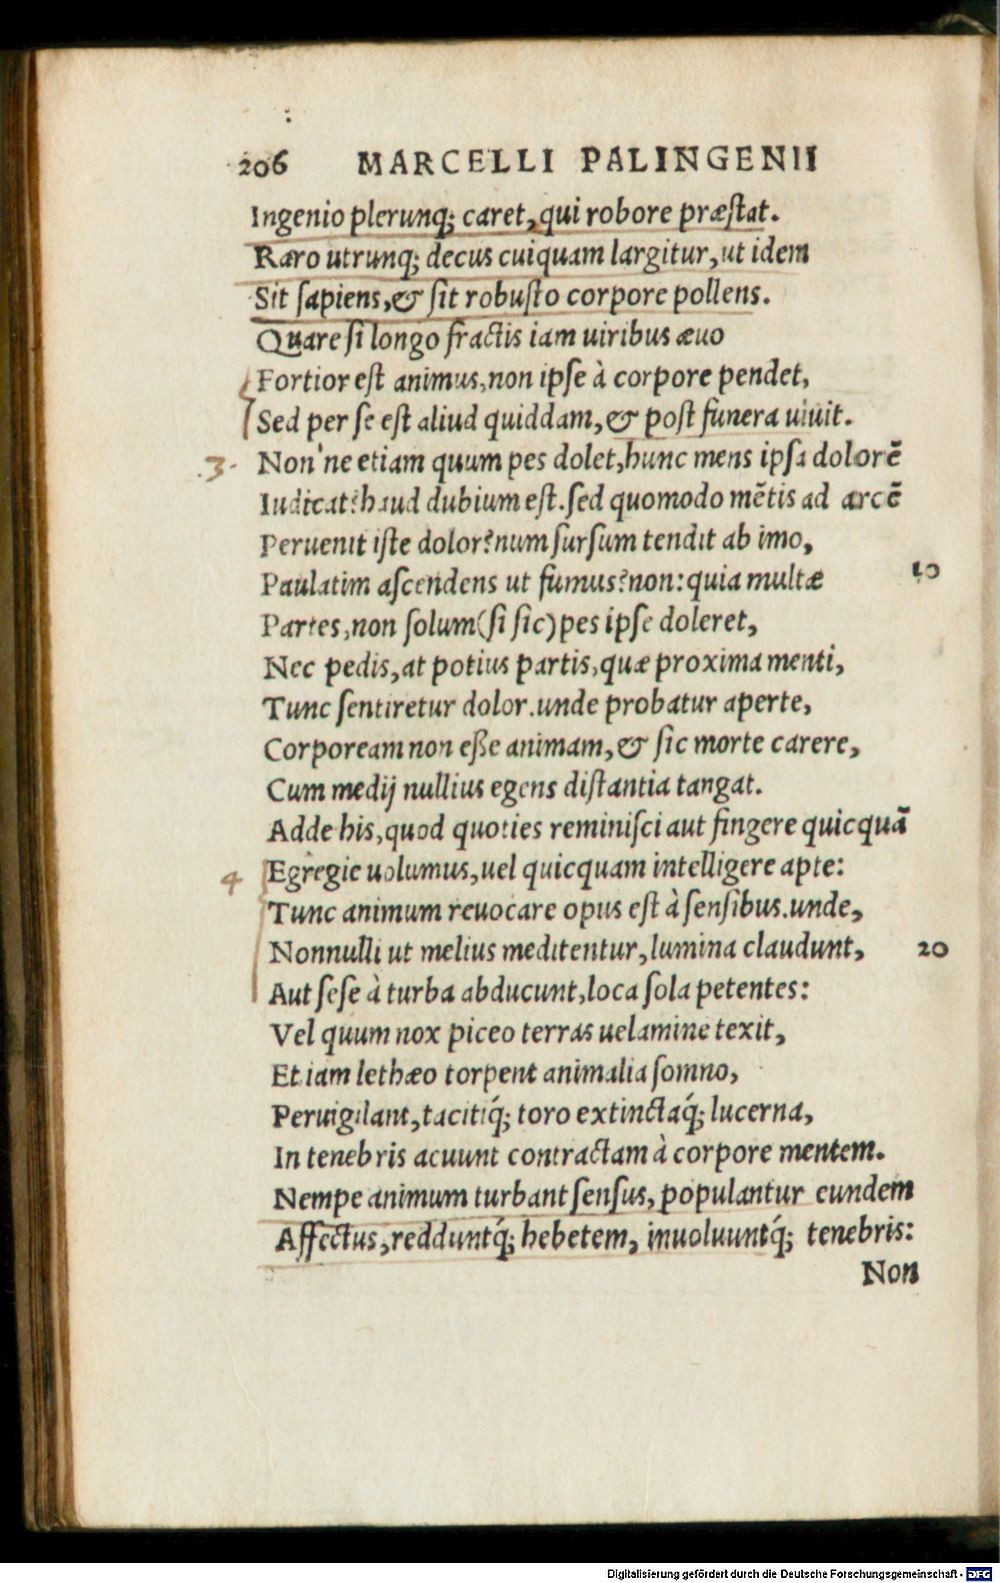 206 MARCELLI PALINGENII
Ingenio plerunq; caret, qui robore præſtat.
Raro utrunq; decus cuiquam largitur, ut idem
Sit ſapiens, & ſit robuſto corpore pollens.
Quare ſi longo fractis iam uiribus æuo
Fortior eſt animus, non ipſe à corpore pendet,
Sed per ſe eſt aliud quiddam, & poſt funera uiuit.
3. Non'ne etiam quum pes dolet, hunc mens ipſa dolorē
Iudicat? haud dubium eſt. ſed quomodo mētis ad arcē
Peruenit iſte dolor? num ſurſum tendit ab imo,
Paulatim aſcendens ut fumus? non: quia multæ 10
Partes, non ſolum (ſi ſic) pes ipſe doleret,
Nec pedis, at potius partis, quæ proxima menti,
Tunc ſentiretur dolor. unde probatur aperte,
Corpoream non eſſe animam, & ſic morte carere,
Cum medij nullius egens diſtantia tangat.
Adde his, quod quoties reminiſci aut fingere quicquā
4 Egregie uolumus, uel quicquam intelligere apte:
Tunc animum reuocare opus eſt à ſenſibus. unde,
Nonnulli ut melius meditentur, lumina claudunt, 20
Aut ſeſe à turba abducunt, loca ſola petentes:
Vel quum nox piceo terras uelamine texit,
Et iam lethæo torpent animalia ſomno,
Peruigilant, tacitiq́; toro extinctaq́; lucerna,
In tenebris acuunt contractam à corpore mentem.
Nempe animum turbant ſenſus, populantur eundem
Affectus, redduntq́; hebetem, inuoluuntq́; tenebris:
Non
Digitalisierung gefördert durch die Deutsche Forschungsgemeinschaft - DFG